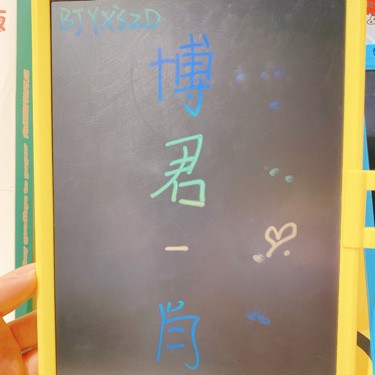 BJYX'SZD
博君一肖